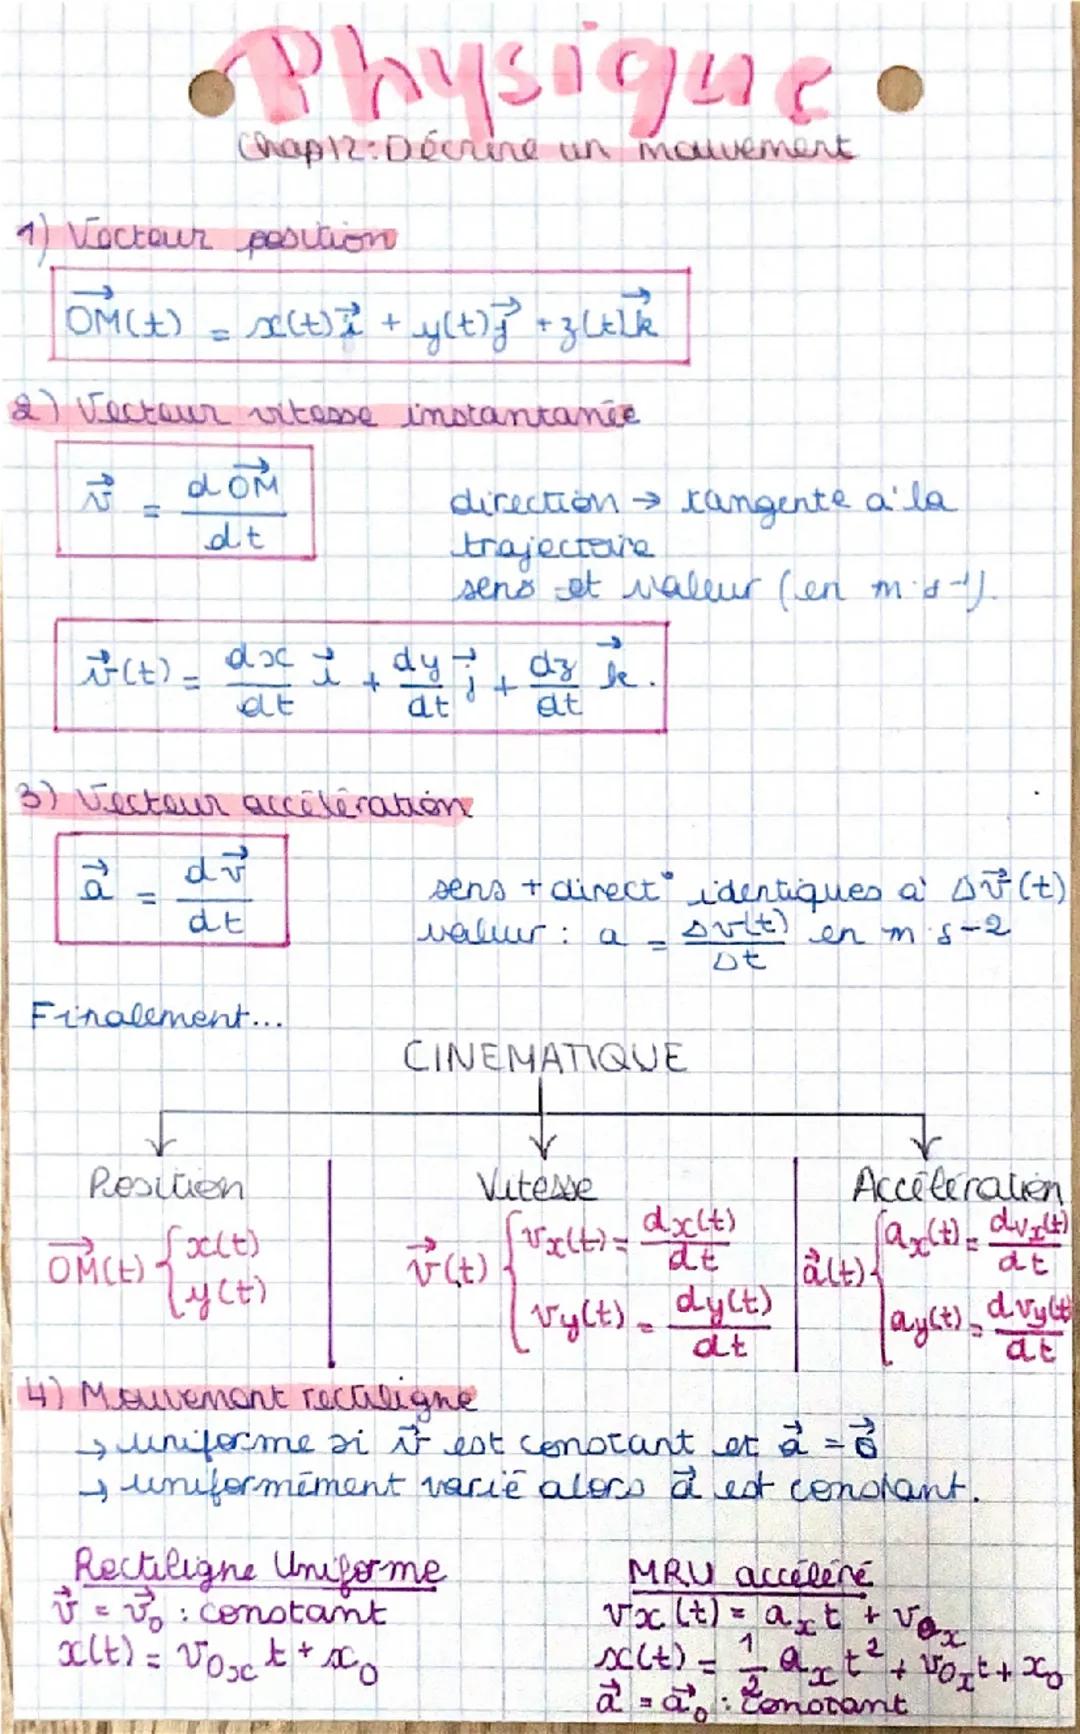 Physique
Chap12: Décrire un mouvement
1) Vecteur position
$\overrightarrow{OM}(t) = x(t)\vec{i} + y(t)\vec{j} + z(t)\vec{k}$
2) Vecteur vitesse instantanée
$\vec{v} = \frac{d\overrightarrow{OM}}{dt}$
direction → tangente à la
trajectoire
sens et valeur (en m·s-1).
$\vec{v}(t) = \frac{dx}{dt}\vec{i} + \frac{dy}{dt}\vec{j} + \frac{dz}{dt}\vec{k}.$
3) Vecteur accélération
$\vec{a} = \frac{d\vec{v}}{dt}$
sens + direct° identiques à $\Delta\vec{v}(t)$
valeur : $a = \frac{\Delta v(t)}{\Delta t}$ en m·s-2
Finalement...
CINEMATIQUE
Position
$\overrightarrow{OM}(t) \begin{cases} x(t) \\ y(t) \end{cases}$
Vitesse
$\vec{v}(t) \begin{cases} v_x(t) = \frac{dx(t)}{dt} \\ v_y(t) = \frac{dy(t)}{dt} \end{cases}$
Accélération
$\vec{a}(t) \begin{cases} a_x(t) = \frac{dv_x(t)}{dt} \\ a_y(t) = \frac{dv_y(t)}{dt} \end{cases}$
4) Mouvement rectiligne
→ uniforme si $\vec{v}$ est constant et $\vec{a} = \vec{0}$
→ uniformément varié alors $\vec{a}$ est constant.
Rectiligne Uniforme
$\vec{v} = \vec{v}_0$ : constant
$x(t) = v_{0x}t + x_0$
MRU accéléré
$v_x(t) = a_x t + v_{0x}$
$x(t) = \frac{1}{2} a_x t^2 + v_{0x}t + x_0$
$\vec{a} = \vec{a}_0$ : constant